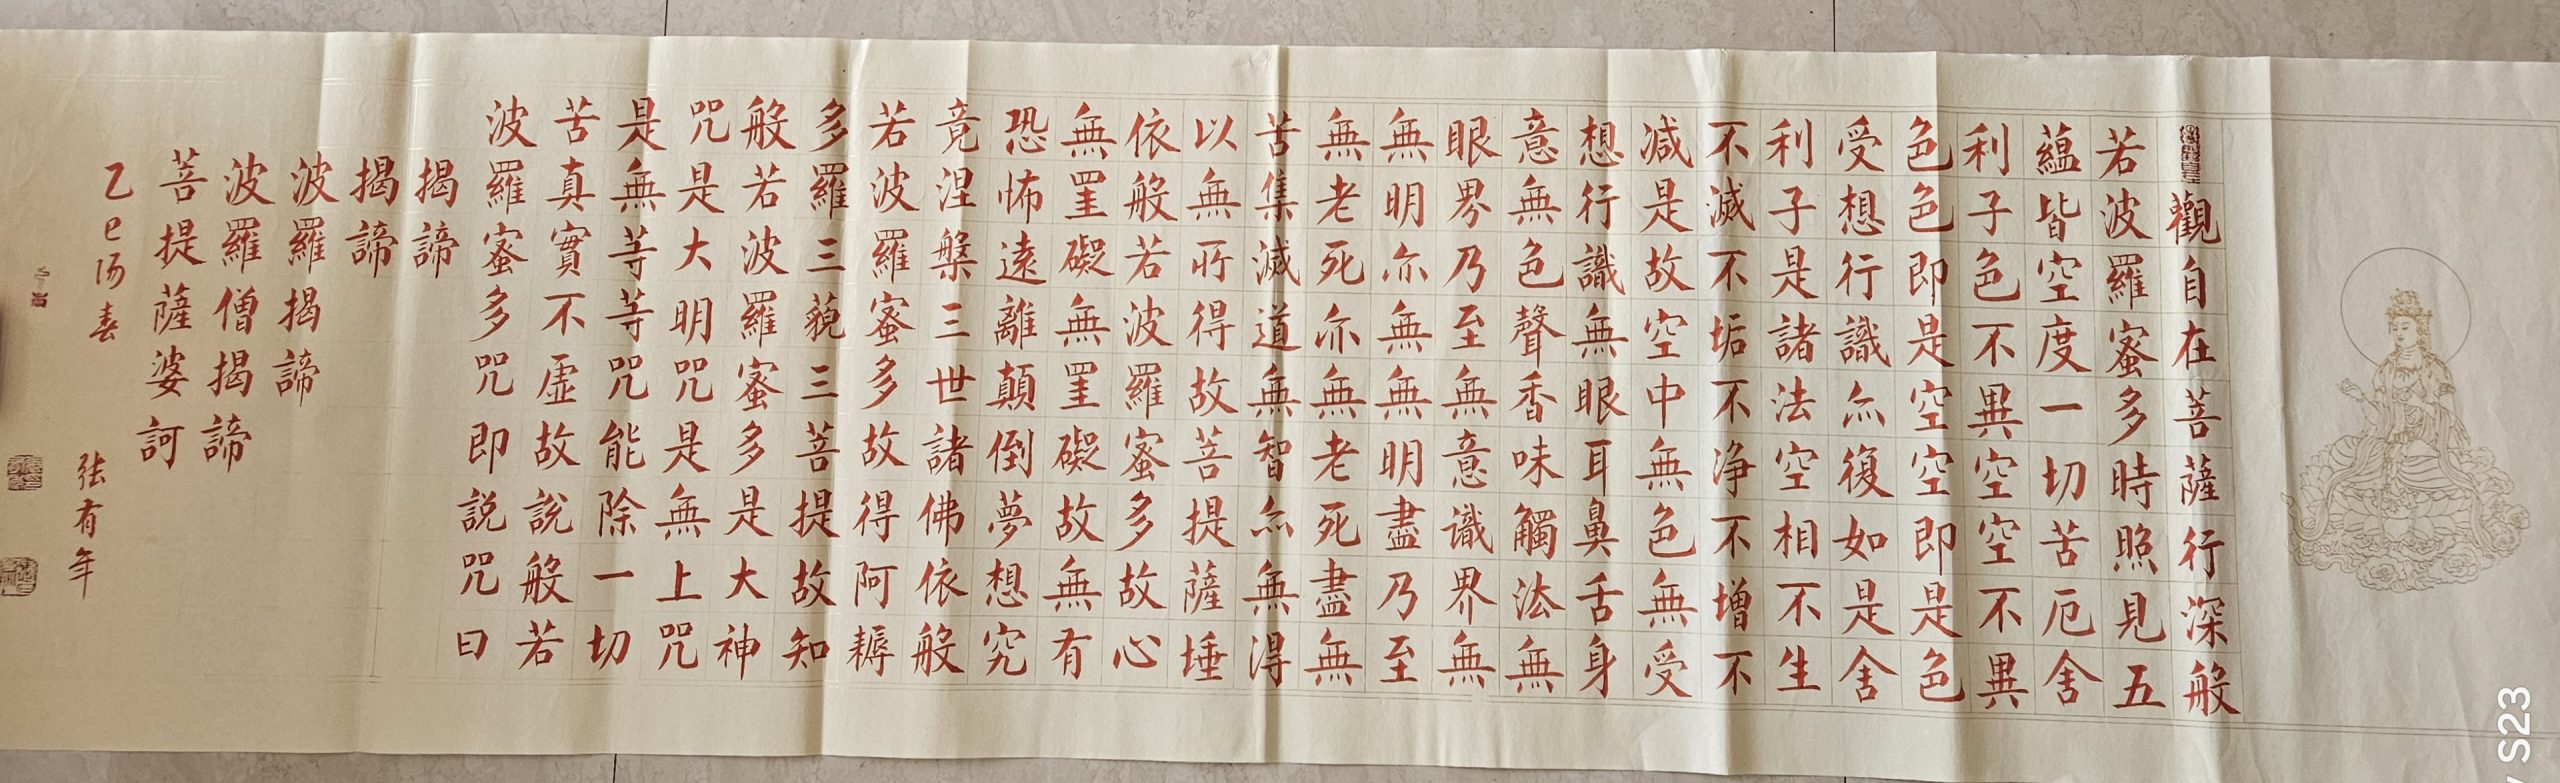 觀自在菩薩行深般
若波羅蜜多時照見五
蘊皆空度一切苦厄舍
利子色不異空空不異
色色即是空空即是色
受想行識亦復如是舍
利子是諸法空相不生
不滅不垢不净不增不
减是故空中無色無受
想行識無眼耳鼻舌身
意無色聲香味觸法無
眼界乃至無意識界無
無明亦無無明盡乃至
無老死亦無老死盡無
苦集滅道無智亦無得
以無所得故菩提薩埵
依般若波羅蜜多故心
無罣礙無罣礙故無有
恐怖遠離顛倒夢想究
竟涅槃三世諸佛依般
若波羅蜜多故得阿耨
多羅三藐三菩提故知
般若波羅蜜多是大神
咒是大明咒是無上咒
是無等等咒能除一切
苦真實不虛故說般若
波羅蜜多咒即說咒曰
揭諦
揭諦
波羅揭諦
波羅僧揭諦
菩提薩婆訶
乙巳陽春
張有年
S23